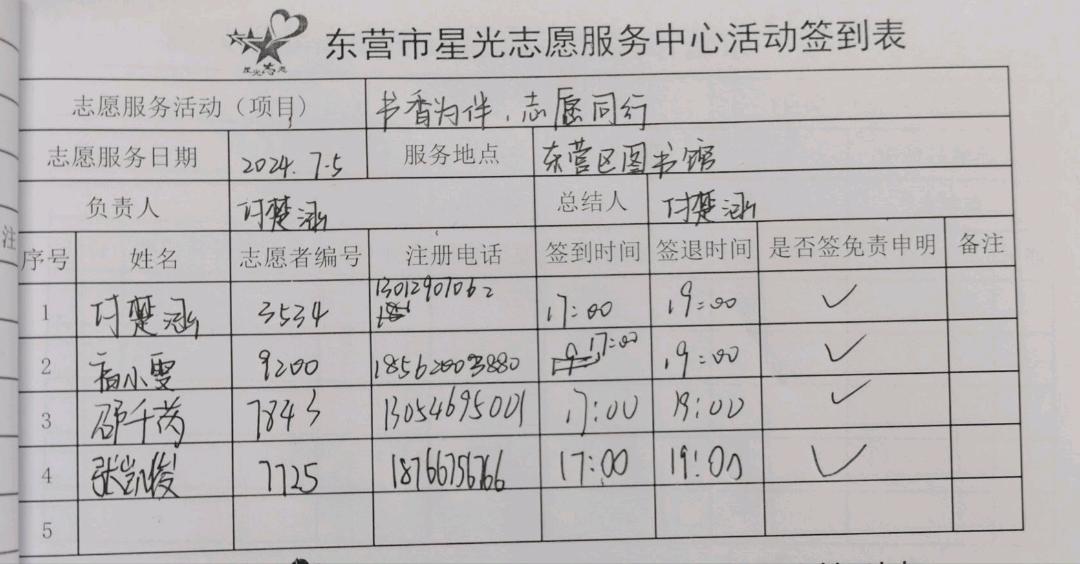 星光志愿
东营市星光志愿服务中心活动签到表
志愿服务活动（项目） 书香为伴，志愿同行
志愿服务日期 2024.7.5 服务地点 东营区图书馆
负责人 付楚涵 总结人 付楚涵
注
序号 姓名 志愿者编号 注册电话 签到时间 签退时间 是否签免责申明 备注
1 付楚涵 3534 13012907062 17:00 19:00 ✓
2 小雯 9200 18562003880 17:00 19:00 ✓
3 邵千芮 7843 13054695001 17:00 19:00 ✓
4 张凯俊 7725 18766756766 17:00 19:00 ✓
5